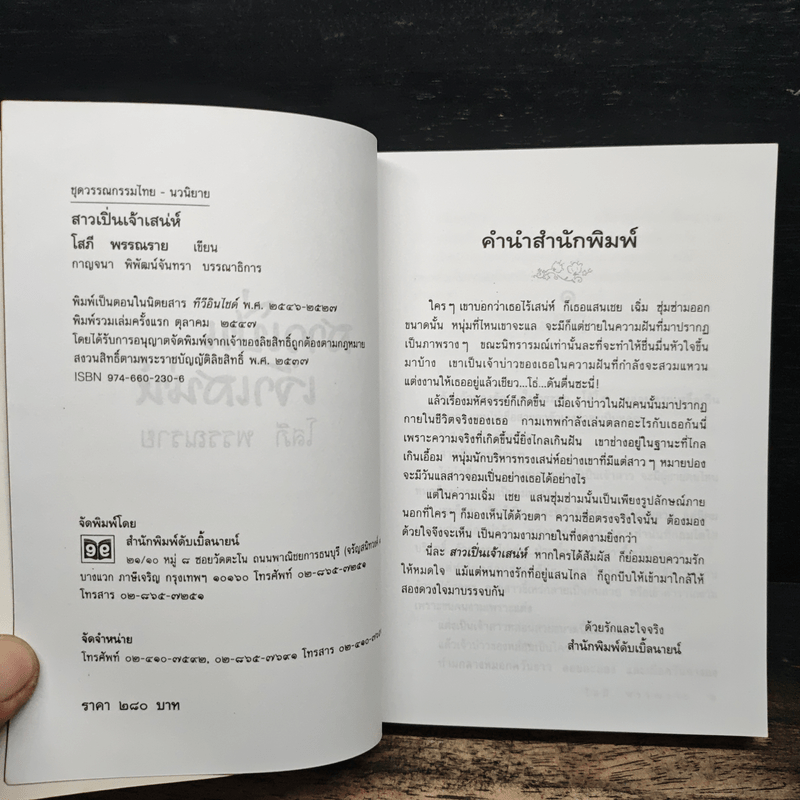 ชุดวรรณกรรมไทย - นวนิยาย
สาวเปิ่นเจ้าเสน่ห์
โสภี พรรณราย เขียน
กาญจนา พิพัฒน์จันทรา บรรณาธิการ
พิมพ์เป็นตอนในนิตยสาร ทีวีอินไซด์ พ.ศ. ๒๕๔๖-๒๕๒๗
พิมพ์รวมเล่มครั้งแรก ตุลาคม ๒๕๔๗
โดยได้รับการอนุญาตจัดพิมพ์จากเจ้าของลิขสิทธิ์ถูกต้องตามกฎหมาย
สงวนสิทธิ์ตามพระราชบัญญัติลิขสิทธิ์ พ.ศ. ๒๕๓๗
ISBN 974-660-230-6
จัดพิมพ์โดย
๑๑ สำนักพิมพ์ดับเบิ้ลนายน์
๒๑/๑๐ หมู่ ๘ ซอยวัดตะโน ถนนพาณิชยการธนบุรี (จรัญสนิทวงศ์
บางแวก ภาษีเจริญ กรุงเทพฯ ๑๐๑๖๐ โทรศัพท์ ๐๒-๘๖๕-๗๒๕๑
โทรสาร ๐๒-๘๖๕-๗๒๕๑
จัดจำหน่าย
โทรศัพท์ ๐๒-๔๑๐-๗๕๙๒, ๐๒-๘๖๕-๗๖๙๑ โทรสาร ๐๒-๔๑๐-
ราคา ๒๘๐ บาท
คำนำสำนักพิมพ์
ใครๆ เขาบอกว่าเธอไร้เสน่ห์ ก็เธอแสนเชย เฉิ่ม ซุ่มซ่ามออก
ขนาดนั้น หนุ่มที่ไหนเขาจะแล จะมีก็แต่ชายในความฝันที่มาปรากฏ
เป็นภาพรางๆ ขณะนิทรารมณ์เท่านั้นละที่จะทำให้ชื่นมื่นหัวใจขึ้น
มาบ้าง เขาเป็นเจ้าบ่าวของเธอในความฝันที่กำลังจะสวมแหวน
แต่งงานให้เธออยู่แล้วเชียว...โธ่...ดันตื่นซะนี่!
แล้วเรื่องมหัศจรรย์ก็เกิดขึ้น เมื่อเจ้าบ่าวในฝันคนนั้นมาปรากฏ
กายในชีวิตจริงของเธอ กามเทพกำลังเล่นตลกอะไรกับเธอกันนี่
เพราะความจริงที่เกิดขึ้นนี้ยิ่งไกลเกินฝัน เขาช่างอยู่ในฐานะที่ไกล
เกินเอื้อม หนุ่มนักบริหารทรงเสน่ห์อย่างเขาที่มีแต่สาวๆ หมายปอง
จะมีวันแลสาวจอมเปิ่นอย่างเธอได้อย่างไร
แต่ในความเฉิ่ม เชย แสนซุ่มซ่ามนั้นเป็นเพียงรูปลักษณ์ภาย
นอกที่ใครๆ ก็มองเห็นได้ด้วยตา ความซื่อตรงจริงใจนั้น ต้องมอง
ด้วยใจจึงจะเห็น เป็นความงามภายในที่งดงามยิ่งกว่า
นี่ละ สาวเปิ่นเจ้าเสน่ห์ หากใครได้สัมผัส ก็ย่อมมอบความรัก
ให้หมดใจ แม้แต่หนทางรักที่อยู่แสนไกล ก็ถูกบีบให้เข้ามาใกล้ให้
สองดวงใจมาบรรจบกัน
ด้วยรักและใจจริง
สำนักพิมพ์ดับเบิ้ลนายน์